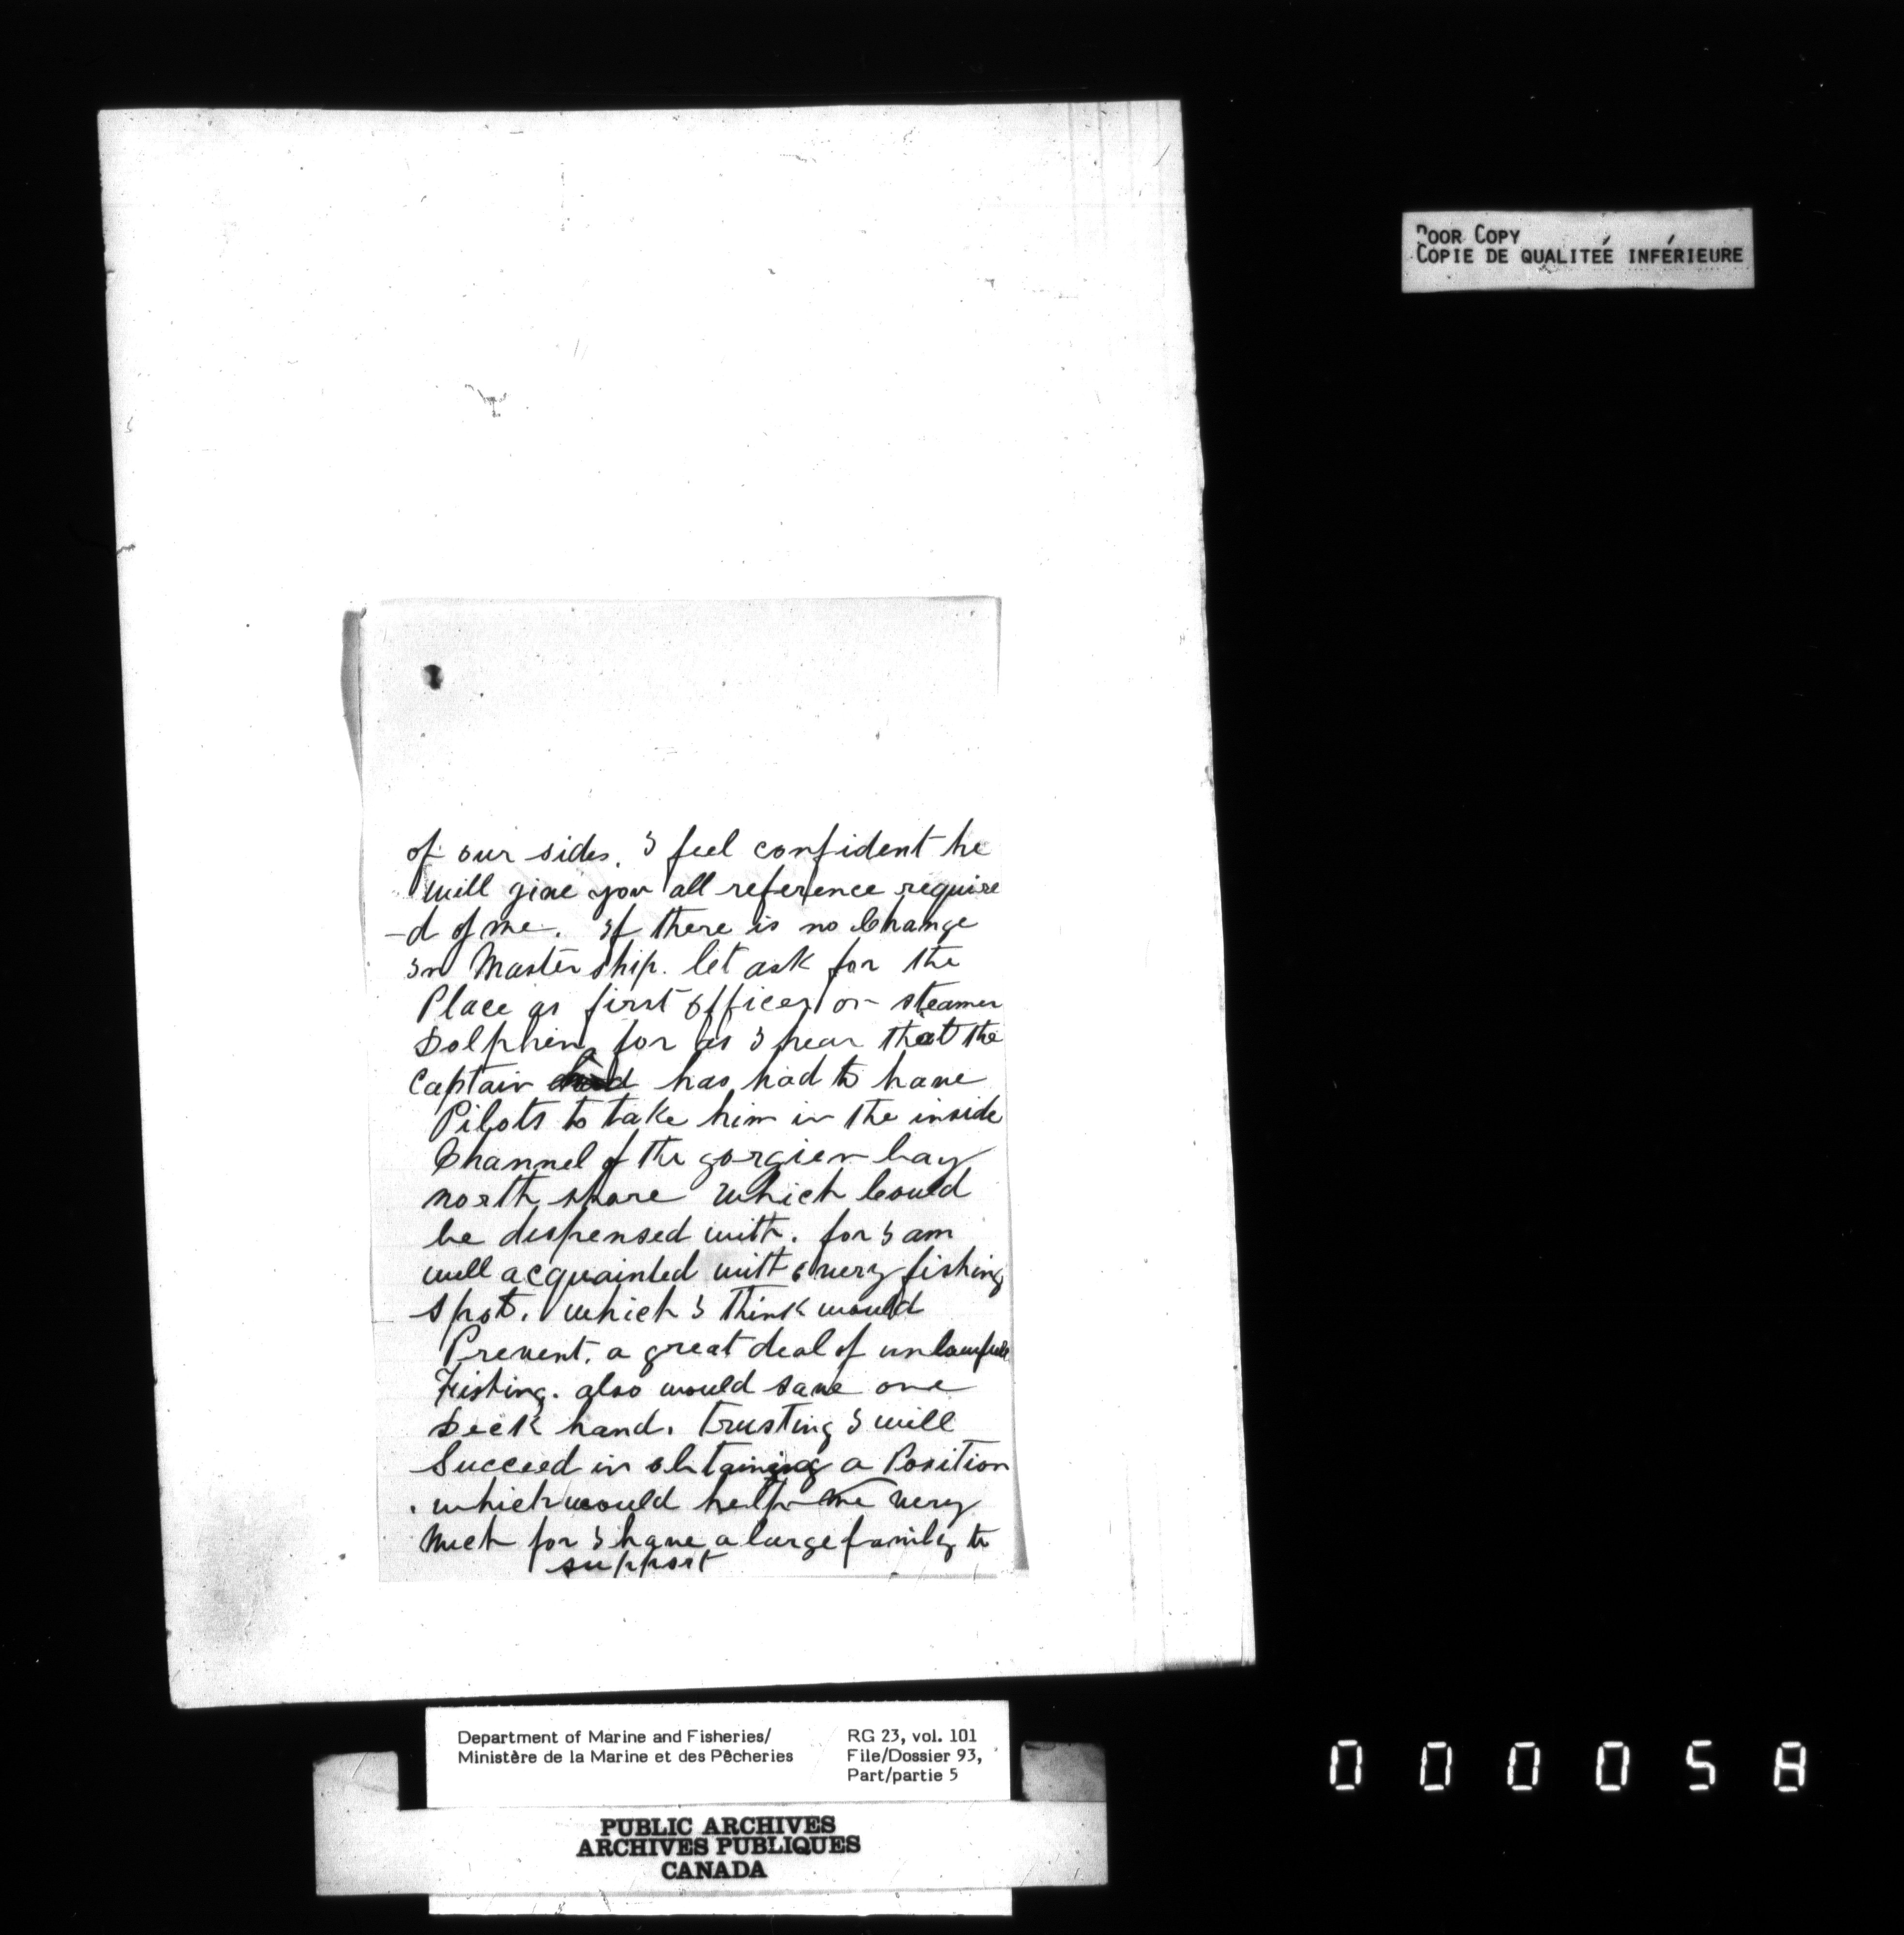 POOR COPY
COPIE DE QUALITEÉ INFÉRIEURE
of our sides. I feel confident he
will give you all reference require
-d of me. If there is no Change
In Master ship. let ask for the
Place as first officer on steamer
Dolphin, for as I hear that the
Captain has had to have
Pilots to take him in the inside
Channel of the gorgien bay
north shore which Could
be dispensed with. for I am
well acquainted with every fishing
spot. which I think would
Prevent. a great deal of unlawfull
Fishing. also would save one
Deck hand. trusting I will
Succeed in obtaining a Position
which would help me very
Much for I have a large family to
support
Department of Marine and Fisheries/
Ministère de la Marine et des Pêcheries
RG 23, vol. 101
File/Dossier 93,
Part/partie 5
PUBLIC ARCHIVES
ARCHIVES PUBLIQUES
CANADA
000058